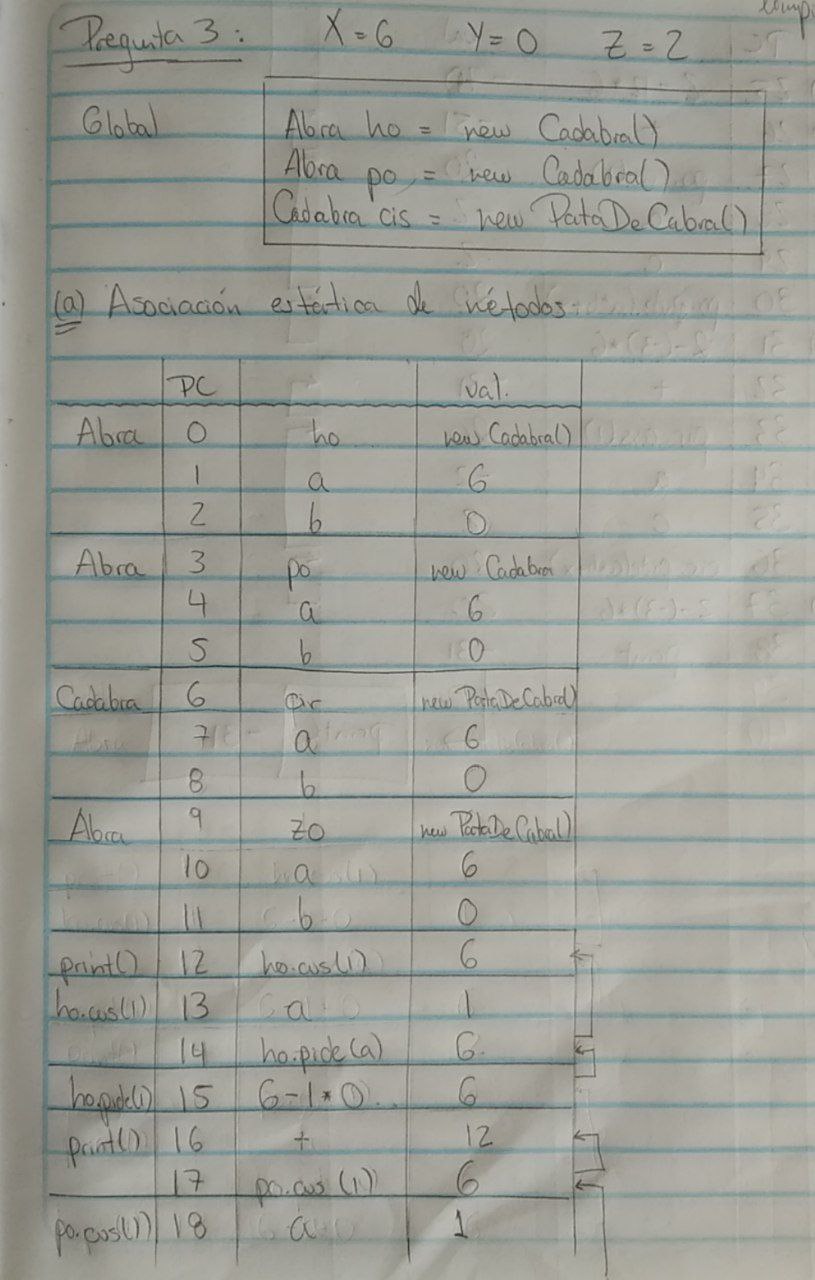 Pregunta 3: X=6 Y=0 Z=2
Global
Abra ho = new Cadabra()
Abra po = new Cadabra()
Cadabra cis = new PataDeCabra()
(a) Asociación estática de métodos.
PC val.
Abra 0 ho new Cadabra()
1 a 6
2 b 0
Abra 3 po new Cadabra
4 a 6
5 b 0
Cadabra 6 cir new PataDeCabra()
7 a 6
8 b 0
Abra 9 zo new PataDeCabra()
10 a 6
11 b 0
print() 12 ho.cus(1) 6
ho.cus(1) 13 a 1
14 ho.pide(a) 6
ho.pide(1) 15 6-1*0 6
print() 16 + 12
17 po.cus(1) 6
po.cus(1) 18 a 1